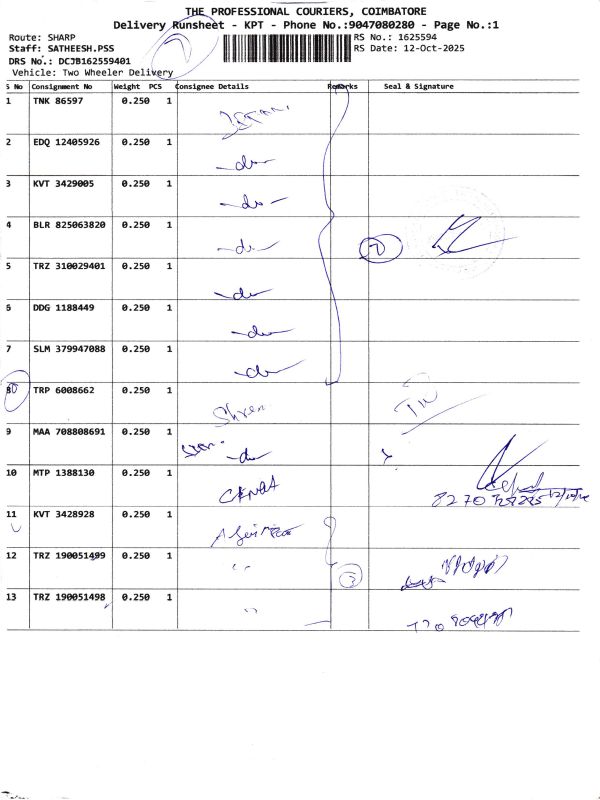 THE PROFESSIONAL COURIERS, COIMBATORE
Delivery Runsheet - KPT - Phone No.:9047080280 - Page No.:1
Route: SHARP
RS No.: 1625594
Staff: SATHEESH.PSS
RS Date: 12-Oct-2025
DRS No.: DCJB162559401
Vehicle: Two Wheeler Delivery
S No Consignment No Weight PCS Consignee Details Remarks Seal & Signature
1 TNK 86597 0.250 1
2 EDQ 12405926 0.250 1
-do-
3 KVT 3429005 0.250 1
-do-
4 BLR 825063820 0.250 1
-do-
7
5 TRZ 310029401 0.250 1
-do-
6 DDG 1188449 0.250 1
-do-
7 SLM 379947088 0.250 1
-do-
8 TRP 6008662 0.250 1
9 MAA 708808691 0.250 1
-do-
10 MTP 1388130 0.250 1
11 KVT 3428928 0.250 1
12 TRZ 190051499 0.250 1
"
3
13 TRZ 190051498 0.250 1
"